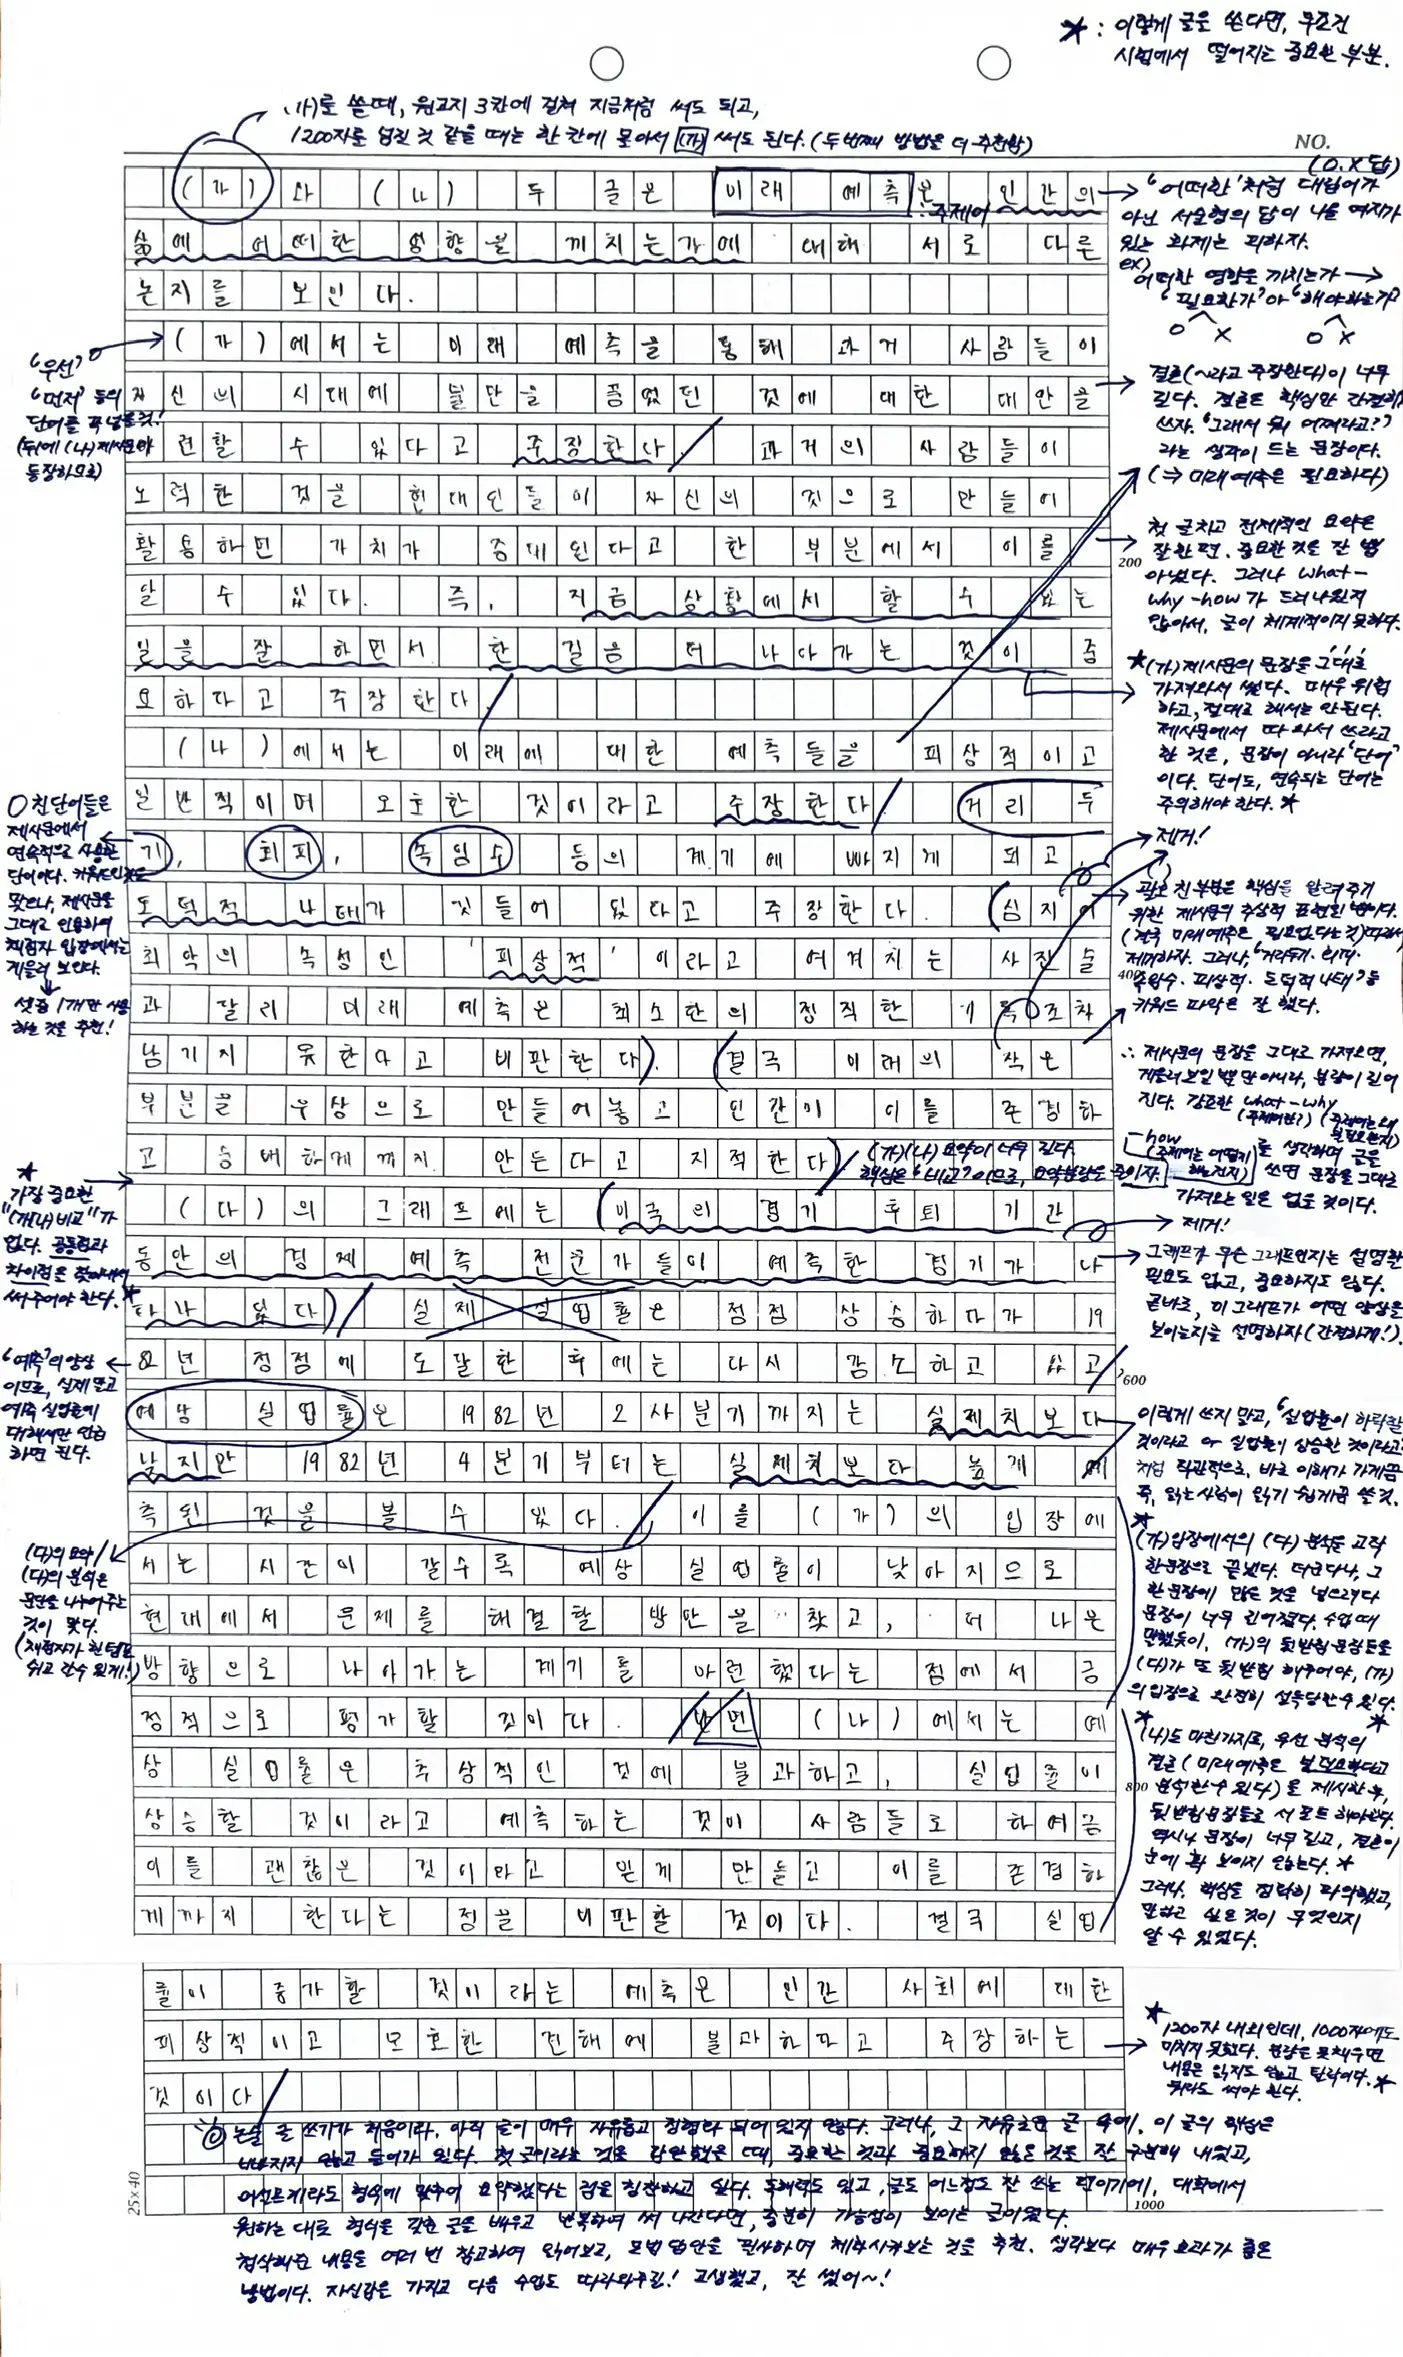 ★ : 이렇게 글을 쓴다면, 무조건
시험에서 떨어지는 중요한 부분.
(가)를 쓸때, 원고지 3칸에 걸쳐 지금처럼 써도 되고,
1200자를 넘길 것 같을 때는 한 칸에 몰아서 (가) 써도 된다. (두번째 방법을 더 추천함)
NO.
(가)와 (나) 두 글은 미래 예측은 인간의
삶에 어떠한 영향을 끼치는가에 대해 서로 다른
논지를 보인다.
(가)에서는 미래 예측을 통해 과거 사람들이
자신의 시대에 불만을 품었던 것에 대한 대안을
마련할 수 있다고 주장한다. 과거의 사람들이
노력한 것을 현대인들이 자신의 것으로 만들어
활용하면 가치가 증대된다고 한 부분에서 이를
알 수 있다. 즉, 지금 상황에서 할 수 있는
일을 잘 하면서 한 걸음 더 나다가는 것이 중
요하다고 주장한다.
(나)에서는 미래에 대한 예측들을 피상적이고
일반적이며 모호한 것이라고 주장한다. 거리 두
기, 회피, 속임수 등의 계기에 빠지게 되고,
도덕적 나태가 깃들어 있다고 주장한다. (심지어
최악의 속성인 '피상적'이라고 여겨지는 사진술
과 달리 미래 예측은 최소한의 정직한 기록조차
남기지 못한다고 비판한다). (결국 미래의 작은
부분을 우상으로 만들어놓고 인간이 이를 존경하
고 숭배하게까지 만든다고 지적한다)
(다)의 그래프에는 (미국의 경기 후퇴 기간
동안의 경제 예측 전문가들이 예측한 경기가 나
타나 있다) 실제 실업률은 점점 상승하다가 19
82년 정점에 도달한 후에는 다시 감소하고 있고,
예상 실업률은 1982년 2사분기까지는 실제치보다
낮지만 1982년 4분기부터는 실제치보다 높게 예
측된 것을 볼 수 있다. 이를 (가)의 입장에
서는 시간이 갈수록 예상 실업률이 낮아지으로
현대에서 문제를 해결할 방안을 찾고, 더 나은
방향으로 나아가는 계기를 마련했다는 점에서 긍
정적으로 평가할 것이다. 반면 (나)에서는 예
상 실업률은 추상적인 것에 불과하고, 실업률이
상승할 것이라고 예측하는 것이 사람들로 하여금
이를 괜찮은 것이라고 믿게 만들고 이를 존경하
게까지 한다는 점을 비판할 것이다. 결국 실업
률이 증가할 것이라는 예측은 인간 사회에 대한
피상적이고 모호한 견해에 불과하다고 주장하는
것이다
200
400
600
800
1000
25×40
: 주제어
"우선"
"먼저" 등의
단어를 꼭 넣을것!
(뒤에 (나)제시문이
등장하므로)
O 친 단어들은
제시문에서
연속적으로 사용한
단어이다. 키워드인 것은
맞으나, 제시문을
그대로 인용하여
채점자 입장에서는
게을러 보인다.
→ 셋중 1개만 사용
하는 것을 추천!
★
가장 중요한
"(가)(나)비교"가
없다. 공통점과
차이점을 찾아내어
써주어야 한다.★
"예측"의 양상
이므로, 실제 말고
예측 실업률에
대해서만 언급
하면 된다.
(다)의 요약 /
(다)의 분석은
문단을 나누어주는
것이 맞다.
(채점자가 한 템포
쉬고 갈수 있게!)
(O.X 답)
"어떠한"처럼 대립어가
아닌 서술형의 답이 나올 여지가
있는 화제는 피하자.
ex)
어떠한 영향을 끼치는가 →
"필요한가"or "해야하는가"
O X O X
결론(~라고 주장한다)이 너무
길다. 결론은 핵심만 간결히
쓰자. "그래서 뭐 어쩌라고?"
라는 생각이 드는 문장이다.
(⇒ 미래예측은 필요하다)
첫 글치고 전체적인 요약은
잘한 편. 중요한 것을 잘 뽑
아냈다. 그러나 what-
why-how가 드러나있지
않아서, 글이 체계적이지 못하다.
★(가)제시문의 문장을 그대로
가져와서 썼다. 매우 위험
하고, 절대로 해서는 안된다.
제시문에서 따와서 쓰라고
한 것은, 문장이 아니라 "단어"
이다. 단어도, 연속되는 단어는
주의해야 한다.★
제거!
괄호 친 부분은 핵심을 알려주기
위한 제시문의 추상적 표현일 뿐이다.
(결국 미래예측은 필요없다는 것) 따라서
제거하자. 그러나, "거리두기·회피·
속임수·피상적·도덕적 나태" 등
키워드 파악은 잘 했다.
∴ 제시문의 문장을 그대로 가져오면,
게을러보일 뿐만 아니라, 분량이 길어
진다. 강조한 what-why
(주제어란?) (주제어는 왜 불필요한지)
how
(주제어는 어떻게 해는건지)
를 생각하며 글을
쓰면 문장을 그대로
가져오는 일은 없을 것이다.
(가)(나) 요약이 너무 길다.
핵심은 "비교"이므로, 요약분량을 줄이자.
제거!
그래프가 무슨 그래프인지는 설명할
필요도 없고, 중요하지도 않다.
곧바로, 이 그래프가 어떤 양상을
보이는지를 설명하자 (간결하게!).
이렇게 쓰지 말고, "실업률이 하락할
것이라고 or 실업률이 상승한 것이라고"
처럼 직관적으로, 바로 이해가 가게끔
즉, 읽는사람이 읽기 쉽게끔 쓸 것.
★
(가)입장에서의 (다) 분석을 고작
한문장으로 끝냈다. 더군다나, 그
한 문장에 많은 것을 넣으려다
문장이 너무 길어졌다. 수업 때
말했듯이, (가)의 뒷받침 문장들을
(다)가 또 뒷받침 해주어야, (가)
의 입장으로 완전히 설득당할수 있다.
★
(나)도 마찬가지로, 우선 분석의
결론(미래예측은 불필요하다고
분석할수 있다)을 제시한 후,
뒷받침문장들로 서포트 해야한다.
역시나 문장이 너무 길고, 결론이
눈에 확 보이지 않는다.★
그러나, 핵심을 정확히 파악했고,
말하고 싶은 것이 무엇인지
알 수 있었다.
★
1200자 내외인데, 1000자에도
미치지 못했다. 분량을 못채우면
내용은 읽지도 않고 탈락이다.★
뭐라도 써야 한다.
◎ 논술 글 쓰기가 처음이라, 아직 글이 매우 자유롭고 정형화 되어 있지 않다. 그러나, 그 자유로운 글 속에, 이 글의 핵심은
빠지지 않고 들어가 있다. 첫 글이라는 것을 감안했을 때, 중요한 것과 중요하지 않은 것을 잘 구분해 내었고,
어설프게라도 형식에 맞추어 요약했다는 점을 칭찬하고 싶다. 독해력도 있고, 글도 어느정도 잘 쓰는 편이기에, 대학에서
원하는 대로 형식을 갖춘 글을 배우고 반복하며 써 나간다면, 충분히 가능성이 보이는 글이었다.
첨삭해준 내용을 여러 번 참고하여 읽어보고, 모범 답안을 필사하며 체화시켜보는 것을 추천. 생각보다 매우 효과가 좋은
방법이다. 자신감을 가지고 다음 수업도 따라와주길! 고생했고, 잘 썼어~!